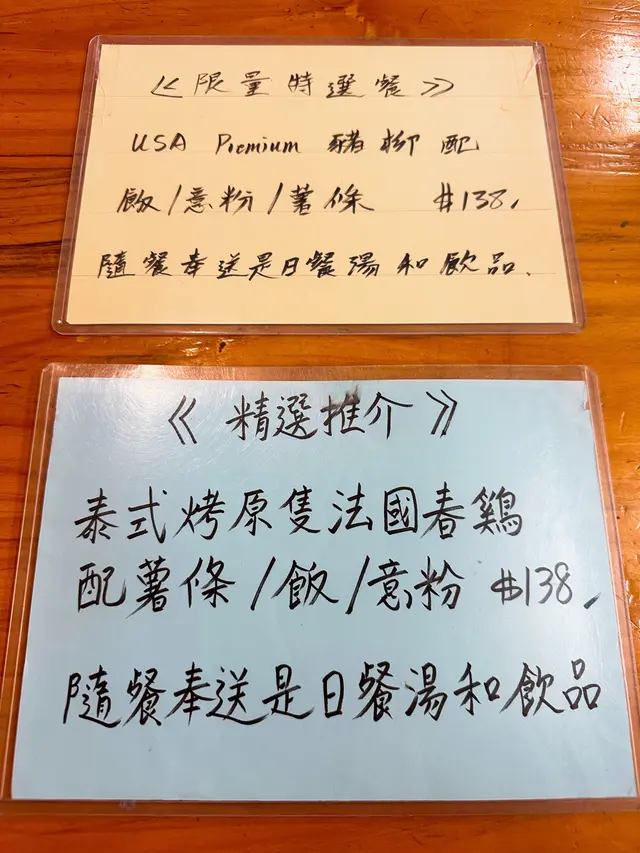 《限量特選餐》
USA Premium 豬柳配
飯/意粉/薯條 $138.
隨餐奉送是日餐湯和飲品.
《精選推介》
泰式烤原隻法國春鷄
配薯條/飯/意粉 $138.
隨餐奉送是日餐湯和飲品